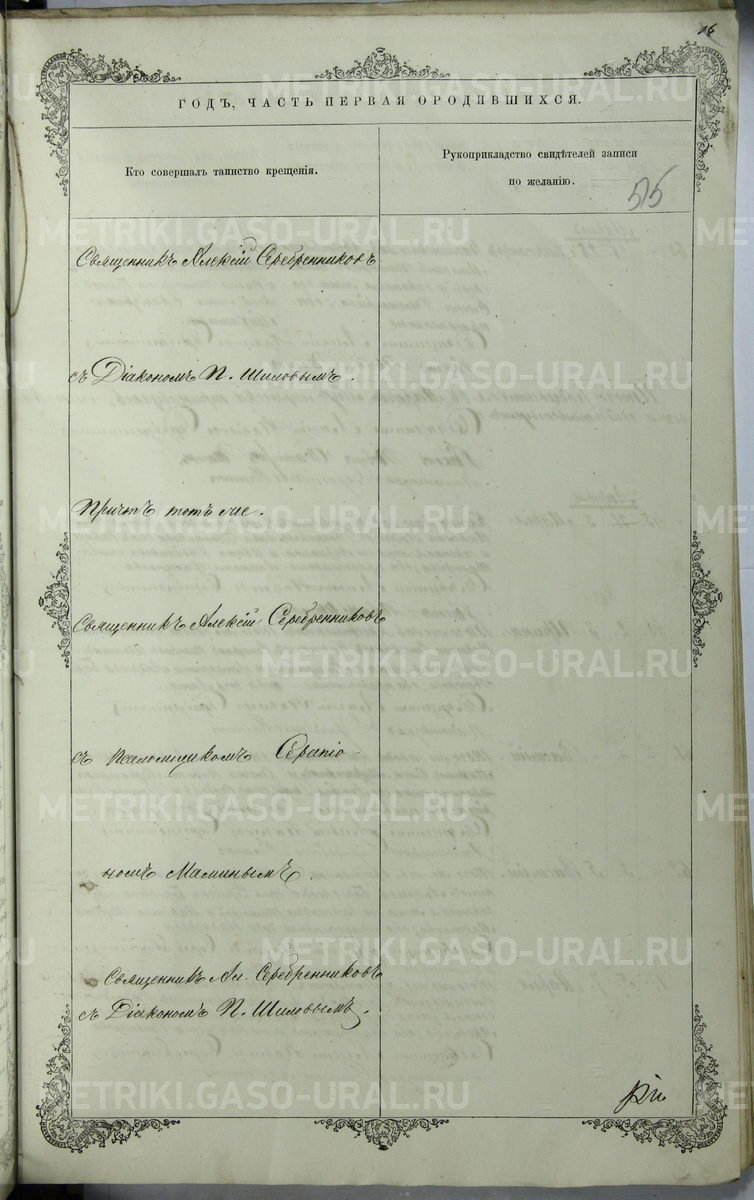 16
ГОДЪ, ЧАСТЬ ПЕРВАЯ ОРОДИВШИХСЯ.
Кто совершалъ таинство крещенія.
Рукоприкладство свидѣтелей записи
по желанію.
515
Священникъ Алексій Серебренниковъ
съ Діакономъ П. Шиловымъ.
Причтъ тотъ же.
Священникъ Алексій Серебренниковъ
съ псаломщикомъ Серапіо
номъ Маминымъ.
Священникъ Ал. Серебренниковъ
съ Діакономъ П. Шиловымъ.
METRIKI.GASO-URAL.RU